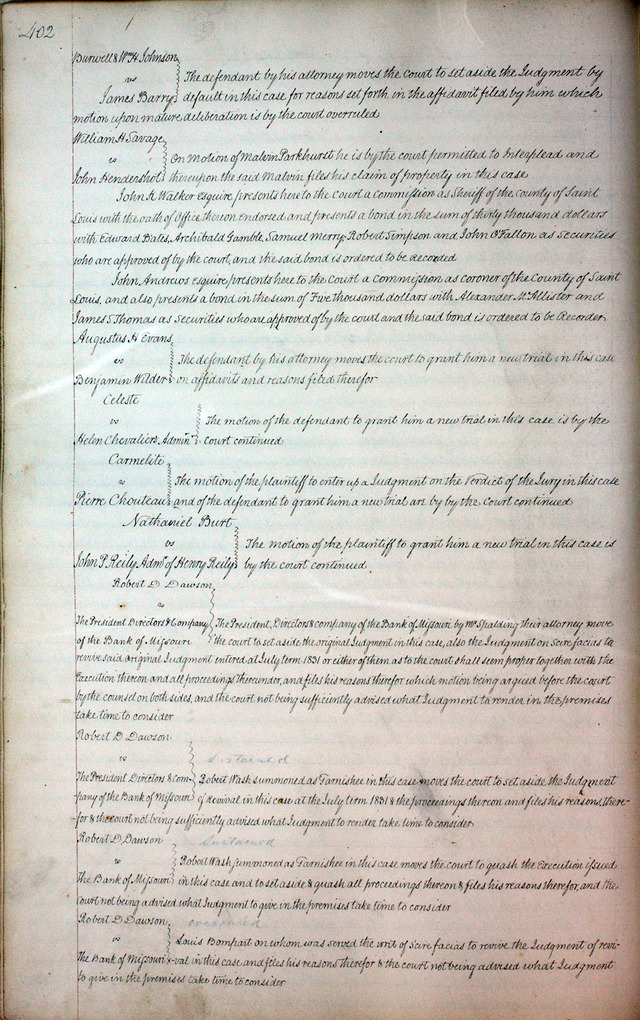 402
Burwell & Wm H Johnson
vs The defendant by his attorney moves the Court to set aside the Judgment by
James Barry default in this case for reasons set forth in the affidavit filed by him which
motion upon mature deliberation is by the court overruled
William H Savage
vs On Motion of Malvin Parkhurst he is by the court permitted to Interplead and
John Hendershot thereupon the said Malvin files his claim of property in this case
John K Walker esquire presents here to the Court a commission as Sheriff of the county of Saint
Louis with the oath of Office thereon endorsed and presents a bond in the sum of thirty thousand dollars
with Edward Bates, Archibald Gamble, Samuel Merry, Robert Simpson and John O'Fallon as Securities
who are approved of by the court, and the said bond is ordered to be Recorded
John Andrews esquire presents here to the Court a Commission as coroner of the County of Saint
Louis, and also presents a bond in the sum of Five thousand dollars with Alexander McAllister and
James S Thomas as Securities who are approved of by the court and the said bond is ordered to be Recorded
Augustus H Evans
vs The defendant by his attorney moves the court to grant him a new trial in this case
Benjamin Wilder on affidavits and reasons filed therefor
Celeste
vs The motion of the defendant to grant him a new trial in this case is by the
Helen Chevaliers Admr Court continued
Carmelite
vs The motion of the plaintiff to enter up a Judgment on the Verdict of the Jury in this case
Pierre Chouteau and of the defendant to grant him a new trial are by by the Court continued
Nathaniel Burt
vs The motion of the plaintiff to grant him a new trial in this case is
John P Reily Admr of Henry Reily by the court continued
Robert D Dawson
vs
The President Directors & Company The President, Directors & company of the Bank of Missouri by Mr Spalding their attorney move
of the Bank of Missouri the court to set aside the original Judgment in this case, also the Judgment on Scire facias to
revive said original Judgment entered at July term 1831 or either of them as to the court shall seem proper together with the
Execution thereon and all proceedings thereunder, and files his reasons therefor which motion being argued before the court
by the counsel on both sides, and the court not being sufficiently advised what Judgment to render in the premises
take time to consider
Robert D Dawson
vs Sustained
The President Directors & Com- Robert Wash summoned as Garnishee in this case moves the court to set aside the Judgment
pany of the Bank of Missouri of Revival in this case at the July term 1831 & the proceedings thereon and files his reasons there-
for & the court not being sufficiently advised what Judgment to render take time to consider
Robert D Dawson Sustained
vs Robert Wash summoned as Garnishee in this case moves the court to quash the Execution issued
The Bank of Missouri in this case and to set aside & quash all proceedings thereon & files his reasons therefor, and the
Court not being advised what Judgment to give in the premises take time to consider
Robert D Dawson overruled
vs Louis Bompart on whom was served the writ of Scire facias to revive the Judgment of revi-
The Bank of Missouri val in this case and files his reasons therefor & the court not being advised what Judgment
to give in the premises take time to consider